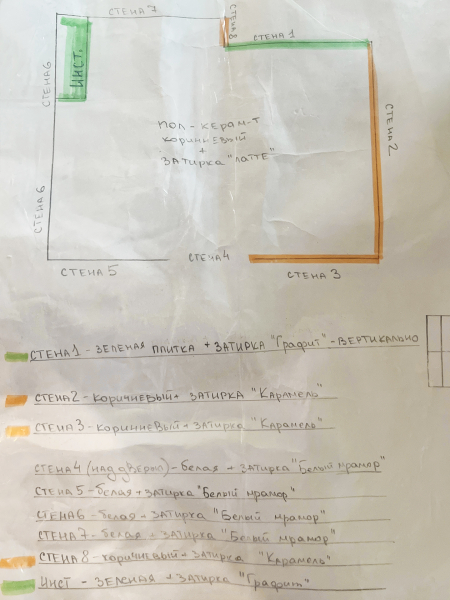 СТЕНА 7
СТЕНА 8
СТЕНА 1
СТЕНА 6
ИНСТ.
ПОЛ - КЕРАМ-Т
КОРИЧНЕВЫЙ
+
ЗАТИРКА "ЛАТТЕ"
СТЕНА 2
СТЕНА 6
СТЕНА 4
СТЕНА 5
СТЕНА 3
СТЕНА 1 - ЗЕЛЕНАЯ ПЛИТКА + ЗАТИРКА "Графит" - ВЕРТИКАЛЬНО
СТЕНА 2 - КОРИЧНЕВЫЙ + ЗАТИРКА "Карамель"
СТЕНА 3 - КОРИЧНЕВЫЙ + ЗАТИРКА "Карамель"
СТЕНА 4 (НАД ДВЕРЬЮ) - белая + ЗАТИРКА "Белый мрамор"
СТЕНА 5 - белая + ЗАТИРКА "Белый мрамор"
СТЕНА 6 - белая + ЗАТИРКА "Белый мрамор"
СТЕНА 7 - белая + ЗАТИРКА "Белый мрамор"
СТЕНА 8 - КОРИЧНЕВЫЙ + ЗАТИРКА "Карамель"
ИНСТ - ЗЕЛЕНАЯ + ЗАТИРКА "Графит"